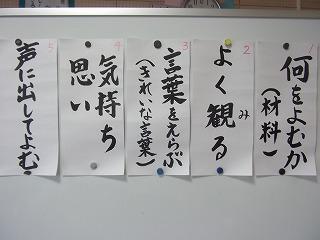 1
何をよむか
(材料)
2
よく観る
み
3
言葉をえらぶ
(きれいな言葉)
4
気持ち
思い
5
声に出してよむ